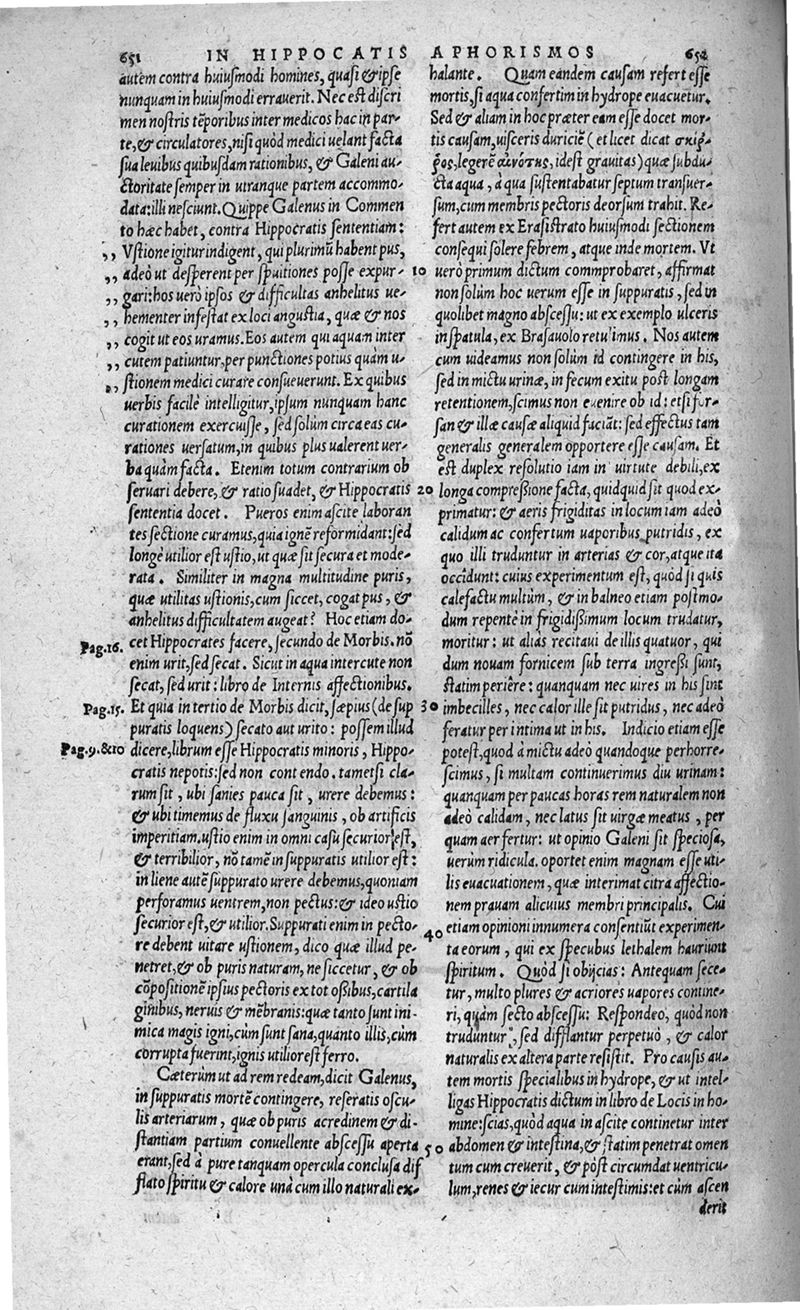 651 IN HIPPOCATIS APHORISMOS 652
autem contra huiusmodi homines, quasi & ipse
nunquam in huiusmodi errauerit. Nec est discri
men nostris tẽporibus inter medicos hac in par-
te, & circulatores, nisi quòd medici uelant facta
sua leuibus quibusdam rationibus, & Galeni au-
ctoritate semper in utranque partem accommo-
data: illi nesciunt. Quippe Galenus in Commen
to hæc habet, contra Hippocratis sententiam:
,, Vstione igitur indigent, qui plurimũ habent pus,
,, adeò ut desperent per sputiones posse expur-
,, gari: hos uerò ipsos & difficultas anhelitus ue-
,, hementer infestat ex loci angustia, quæ & nos
,, cogit ut eos uramus. Eos autem qui aquam inter
,, cutem patiuntur, per punctiones potius quàm u-
,, stionem medici curare consueuerunt. Ex quibus
uerbis facilè intelligitur, ipsum nunquam hanc
curationem exercuisse, sed solùm circa eas cu-
rationes uersatum, in quibus plus ualerent uer-
ba quàm facta. Etenim totum contrarium ob
seruari debere, & ratio suadet, & Hippocratis
sententia docet. Pueros enim ascite laboran
tes sectione curamus, quia ignẽ reformidant: sed
longè utilior est ustio, ut quæ sit secura et mode-
rata. Similiter in magna multitudine puris,
quæ utilitas ustionis, cum siccet, cogat pus, &
anhelitus difficultatem augeat? Hoc etiam do-
Pag.16. cet Hippocrates facere, secundo de Morbis. nõ
enim urit, sed secat. Sicut in aqua intercute non
secat, sed urit: libro de Internis affectionibus.
Pag.15. Et quia in tertio de Morbis dicit, sæpius (de sup
puratis loquens) secato aut urito: possem illud
Pag.9.&10 dicere, librum esse Hippocratis minoris, Hippo-
cratis nepotis: sed non contendo. tametsi cla-
rum sit, ubi sanies pauca sit, urere debemus:
& ubi timemus de fluxu sanguinis, ob artificis
imperitiam. ustio enim in omni casu securior est,
& terribilior, nõ tamẽ in suppuratis utilior est:
in liene autẽ suppurato urere debemus, quoniam
perforamus uentrem, non pectus: & ideo ustio
securior est, & utilior. Suppurati enim in pecto-
re debent uitare ustionem, dico quæ illud pe-
netret, & ob puris naturam, ne siccetur, & ob
cõpositionẽ ipsius pectoris ex tot ossibus, cartila
ginibus, neruis & mẽbranis: quæ tanto sunt ini-
mica magis igni, cùm sunt sana, quanto illis, cùm
corrupta fuerint, ignis utilior est ferro.
Cæterùm ut ad rem redeam, dicit Galenus,
in suppuratis mortẽ contingere, reseratis oscu-
lis arteriarum, quæ ob puris acredinem & di-
stantiam partium conuellente abscessu aperta
erant, sed à pure tanquam opercula conclusa dif
flato spiritu & calore unà cum illo naturali ex-
halante. Quam eandem causam refert esse
mortis, si aqua confertim in hydrope euacuetur.
Sed & aliam in hoc præter eam esse docet mor-
tis causam, uisceris duriciẽ (et licet dicat σκιῤ-
ῥος, legerẽ αἰνότης, idest grauitas) quæ subdu-
cta aqua, à qua sustentabatur septum transuer-
sum, cum membris pectoris deorsum trahit. Re-
fert autem ex Erasistrato huiusmodi sectionem
consequi solere febrem, atque inde mortem. Vt
10 uerò primum dictum commprobaret, affirmat
non solùm hoc uerum esse in suppuratis, sed in
quolibet magno abscessu: ut ex exemplo ulceris
in spatula, ex Brasauolo retulimus. Nos autem
cum uideamus non solùm id contingere in his,
sed in mictu urinæ, in fecum exitu post longam
retentionem, scimus non euenire ob id: etsi for-
san & illæ causæ aliquid faciãt: sed effectus tam
generalis generalem opportere esse causam. Et
est duplex resolutio iam in uirtute debili, ex
20 longa compressione facta, quidquid sit quod ex-
primatur: & aeris frigiditas in locum iam adeò
calidum ac confertum uaporibus putridis, ex
quo illi truduntur in arterias & cor, atque ita
occidunt: cuius experimentum est, quòd si quis
calefactu multùm, & in balneo etiam postmo-
dum repentè in frigidissimum locum trudatur,
moritur: ut aliàs recitaui de illis quatuor, qui
dum nouam fornicem sub terra ingressi sunt,
statim periêre: quanquam nec uires in his sint
30 imbecilles, nec calor ille sit putridus, nec adeò
feratur per intima ut in his. Indicio etiam esse
potest, quod à mictu adeò quandoque perhorre-
scimus, si multam continuerimus diu urinam:
quanquam per paucas horas rem naturalem non
adeò calidam, nec latus sit uirgæ meatus, per
quam aer fertur: ut opinio Galeni sit speciosa,
uerùm ridicula. oportet enim magnam esse uti-
lis euacuationem, quæ interimat citra affectio-
nem prauam alicuius membri principalis. Cui
40 etiam opinioni innumera consentiũt experimen-
ta eorum, qui ex specubus lethalem hauriunt
spiritum. Quòd si obijcias: Antequam sece-
tur, multo plures & acriores uapores contine-
ri, quàm secto abscessu: Respondeo, quòd non
truduntur, sed difflantur perpetuò, & calor
naturalis ex altera parte resistit. Pro causis au-
tem mortis specialibus in hydrope, & ut intel-
ligas Hippocratis dictum in libro de Locis in ho-
mine: scias, quòd aqua in ascite continetur inter
50 abdomen & intestina, & statim penetrat omen
tum cum creuerit, & pòst circumdat uentricu-
lum, renes & iecur cum intestinis: et cùm ascen
derit